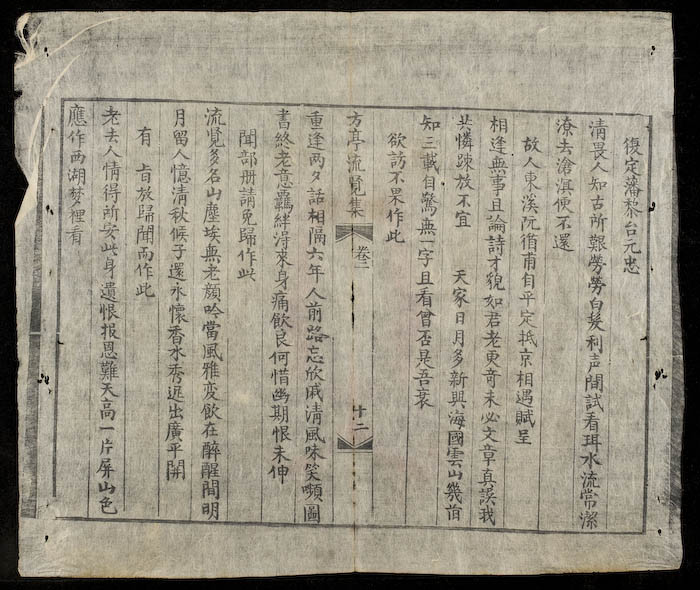 復定藩黎台元忠
淸畏人知古所難勞勞白髮利声闌試看珥水流常潔
潦去滄溟便不還
故人東溪阮循甫自平定抵京相遇賦呈
相逢無事且論詩才貌如君老更奇未必文章真誤我
共憐踈放不宜 天家日月多新興海國雲山幾舊
知三載自驚無一字且看曾否是吾衰
欲訪不果作此
方亭流覧集 卷二 十二
重逢两夕話相隔六年人前路忘欣戚清風味笑嚬圖
書終老意羈絆淂來身痛飲良何惜幽期恨未伸
聞部册請免歸作此
流覧多名山塵埃無老顔吟當風雅变飲在醉醒間明
月留人憶清秋候子還永懷香水秀迟出廣平関
有 㫖放歸聞而作此
老去人情得所安此身遺恨报恩難天高一片屏山色
應作西湖梦裡看